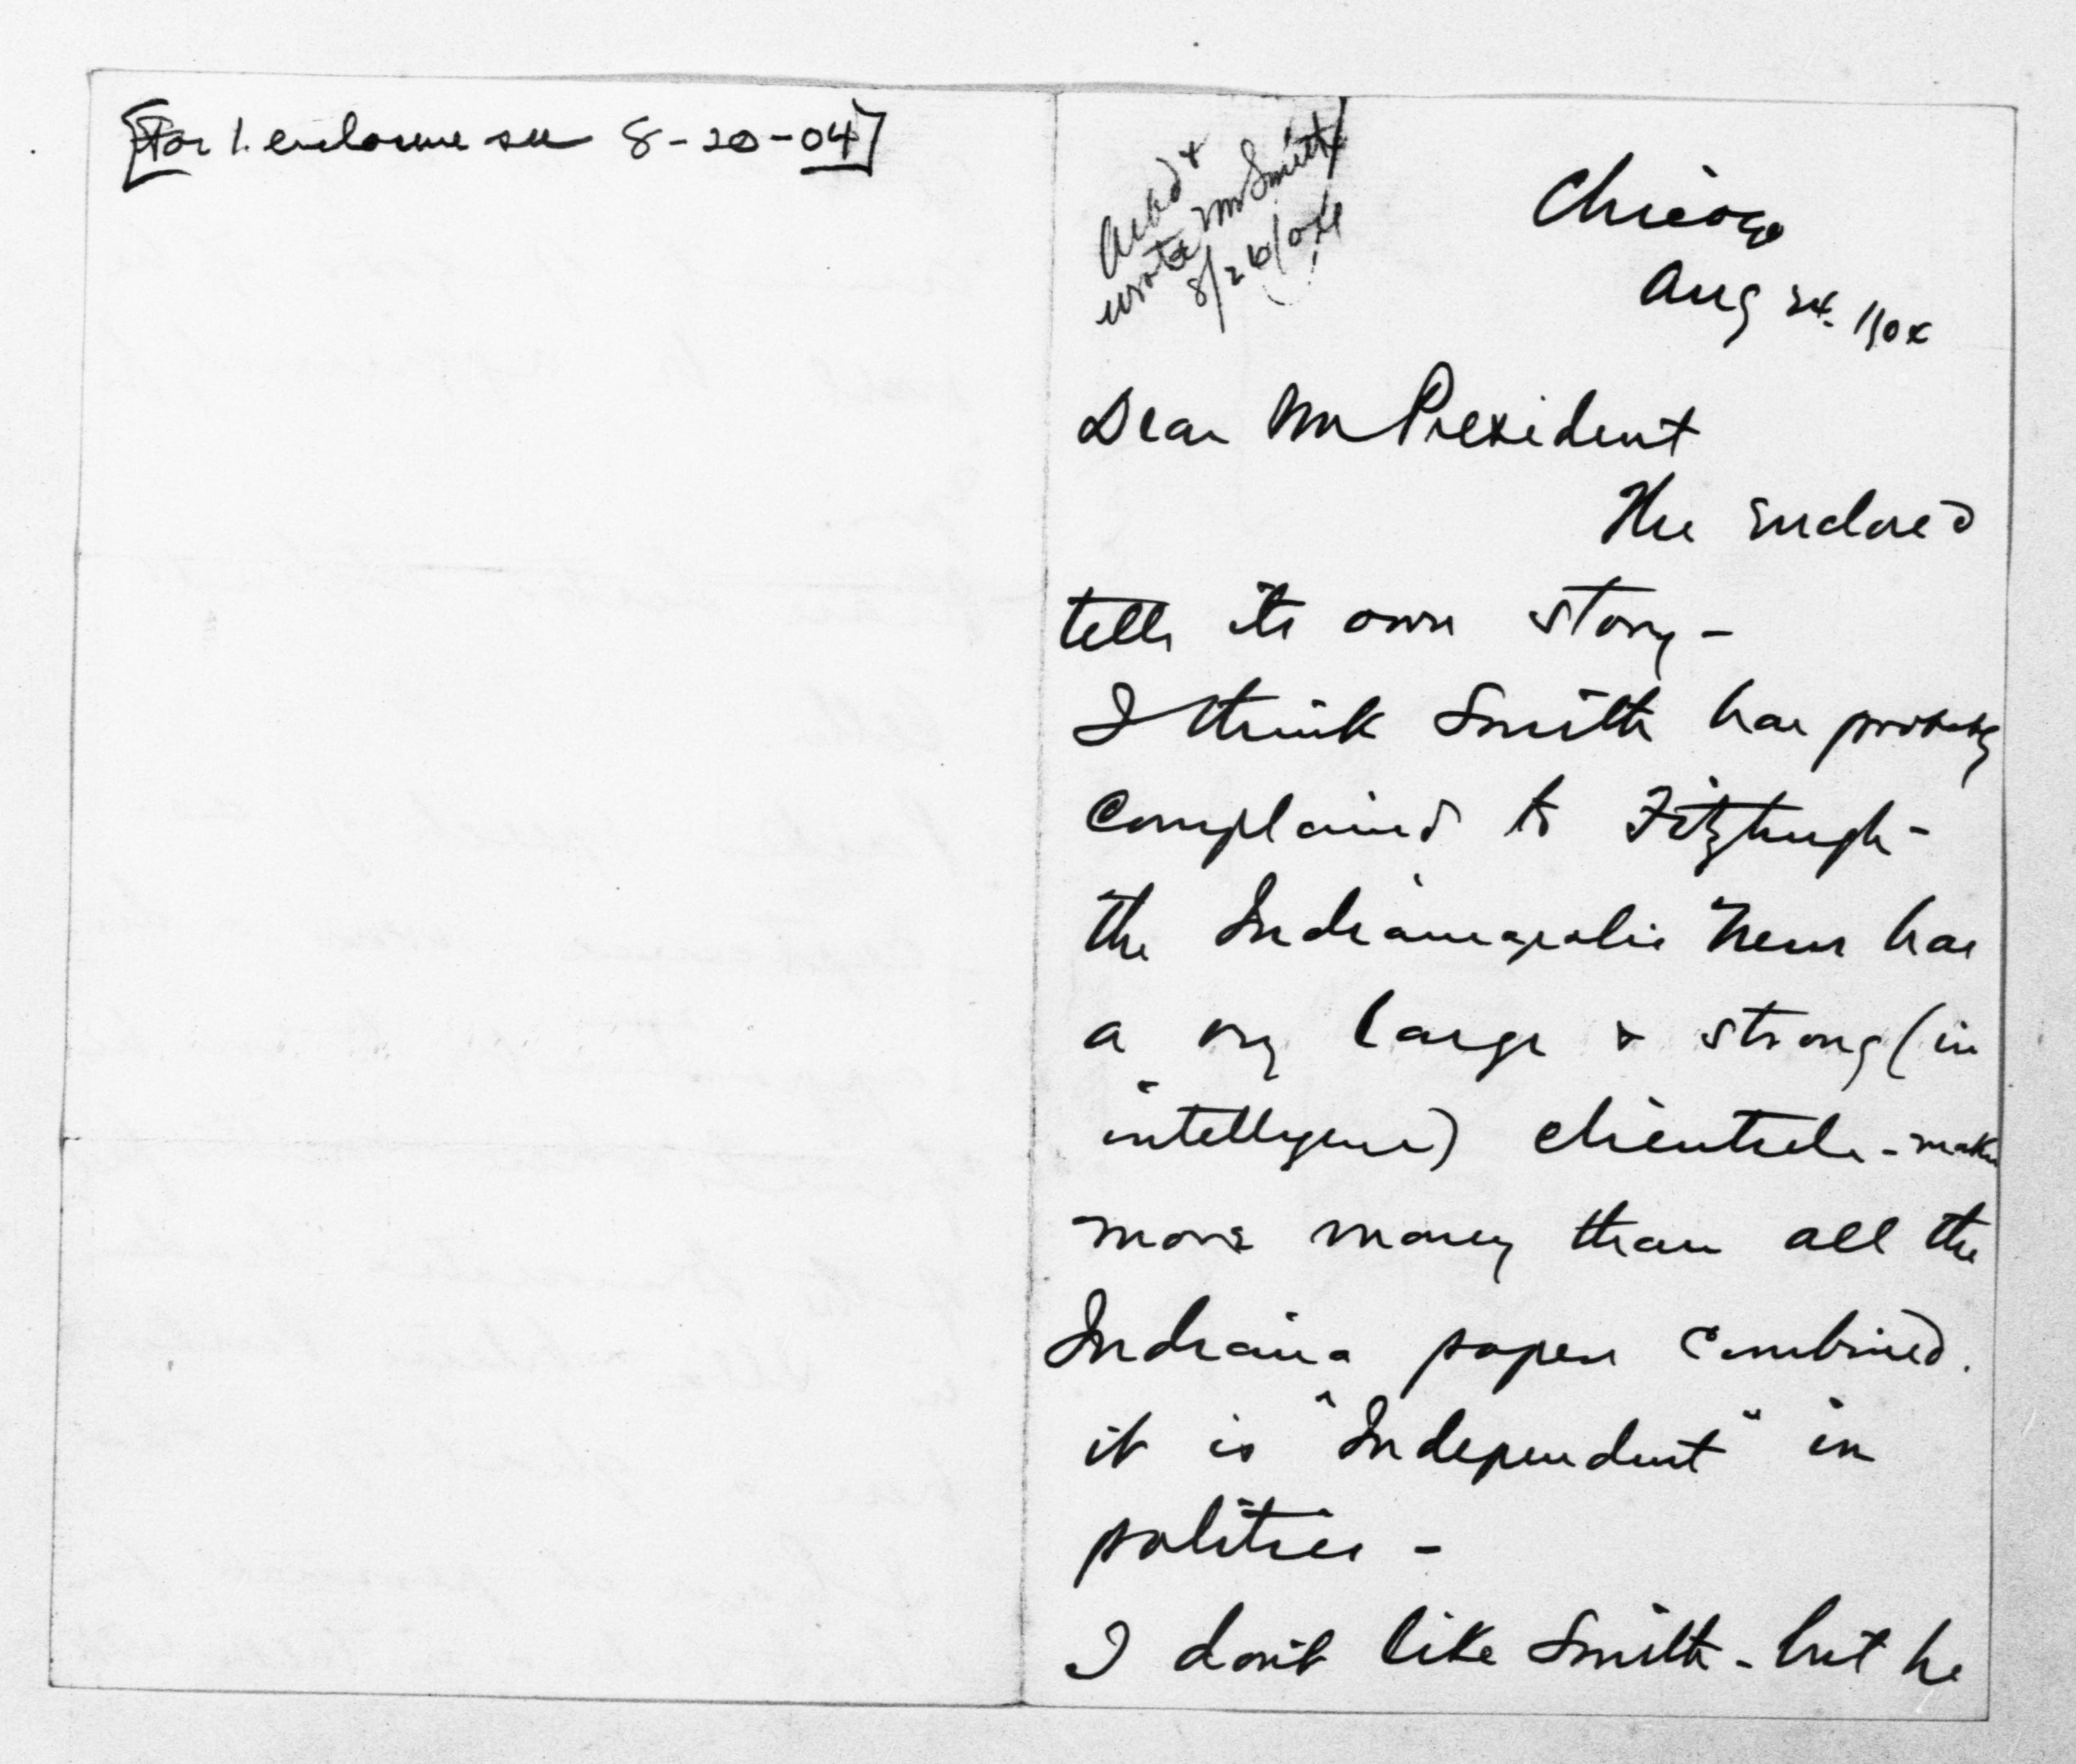 [For 1. enclosure see 8-20-04]
Ackd &
wrote Mr Smith
8/26/04
Chicago
Aug 24. 1904
Dear Mr President
The enclosed
tells its own story -
I think Smith has probably
complained to Fitzhugh -
the Indianapolis News has
a very large & strong (in
intelligence) clientele - makes
more money than all the
Indiana papers combined.
it is "Independent" in
politics -
I don't like Smith - but he